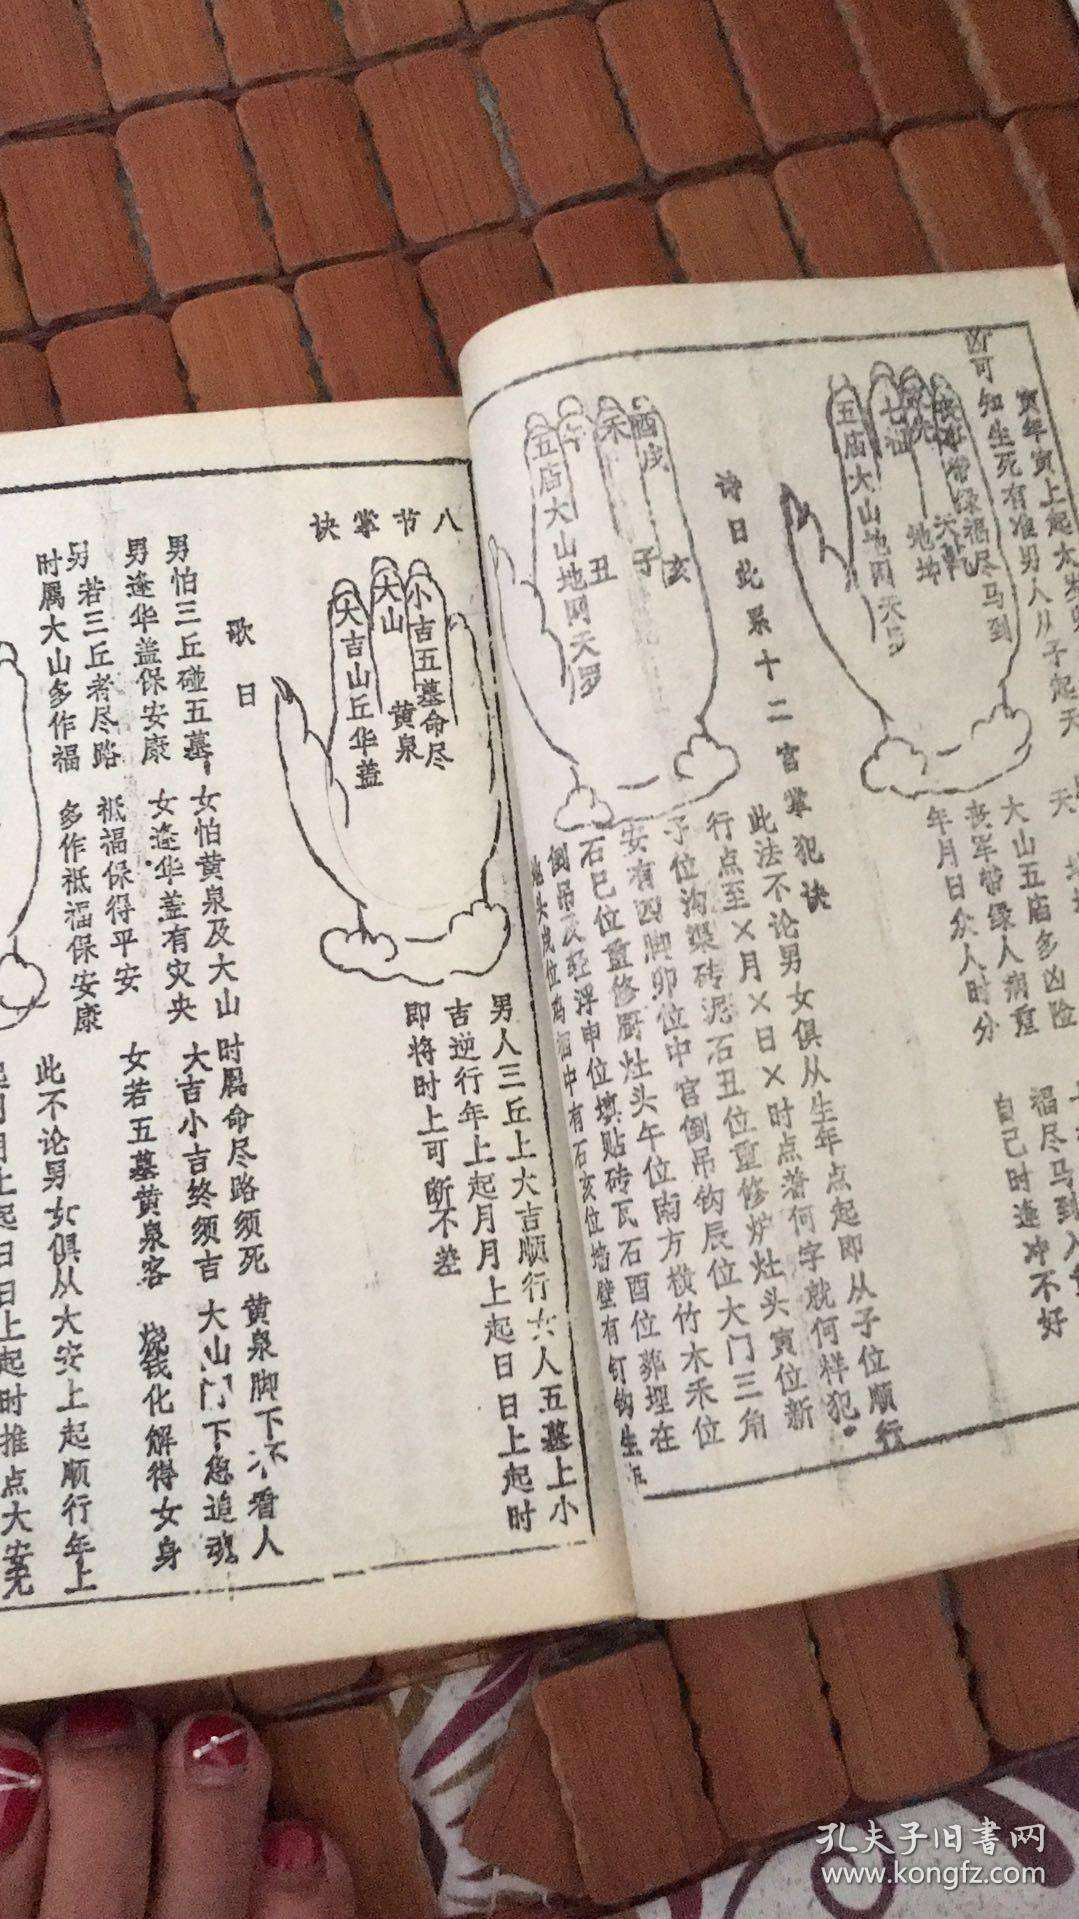 凶可知生死有准男人从子起天
福尽马到
五庙大山地网天罗
大山五庙多凶险
丧军带绿人病重
年月日众人时分
自己时逢冲不好
诗曰此系十二宫掌犯诀
酉戌
亥
子
丑
五庙大山地网天罗
此法不论男女俱从生年点起即从子位顺行
行点至×月×日×时点着何字就何样犯。
子位沟渠砖泥石丑位重修炉灶头寅位新
安有四脚卯位中宫倒吊钩辰位大门三角
石巳位重修厨灶头午位南方横竹木未位
倒吊及轻浮申位填贴砖瓦石酉位葬埋在
中有石亥位墙壁有钉钩
八节掌诀
小吉五墓命尽
黄泉
大山
大吉山丘华盖
男人三丘上大吉顺行女人五墓上小
吉逆行年上起月月上起日日上起时
即将时上可断不差
歌曰
男怕三丘碰五墓 女怕黄泉及大山 时属命尽路须死 黄泉脚下不看人
男逢华盖保安康 女逢华盖有灾央 大吉小吉终须吉 大山门下急追魂
男若三丘者尽路 祗福保得平安 女若五墓黄泉客 烧钱化解得女身
时属大山多作福 多作祗福保安康
此不论男女俱从大安上起顺行年上
起月月上起日日上起时推点大安无
孔夫子旧书网
www.kongfz.com